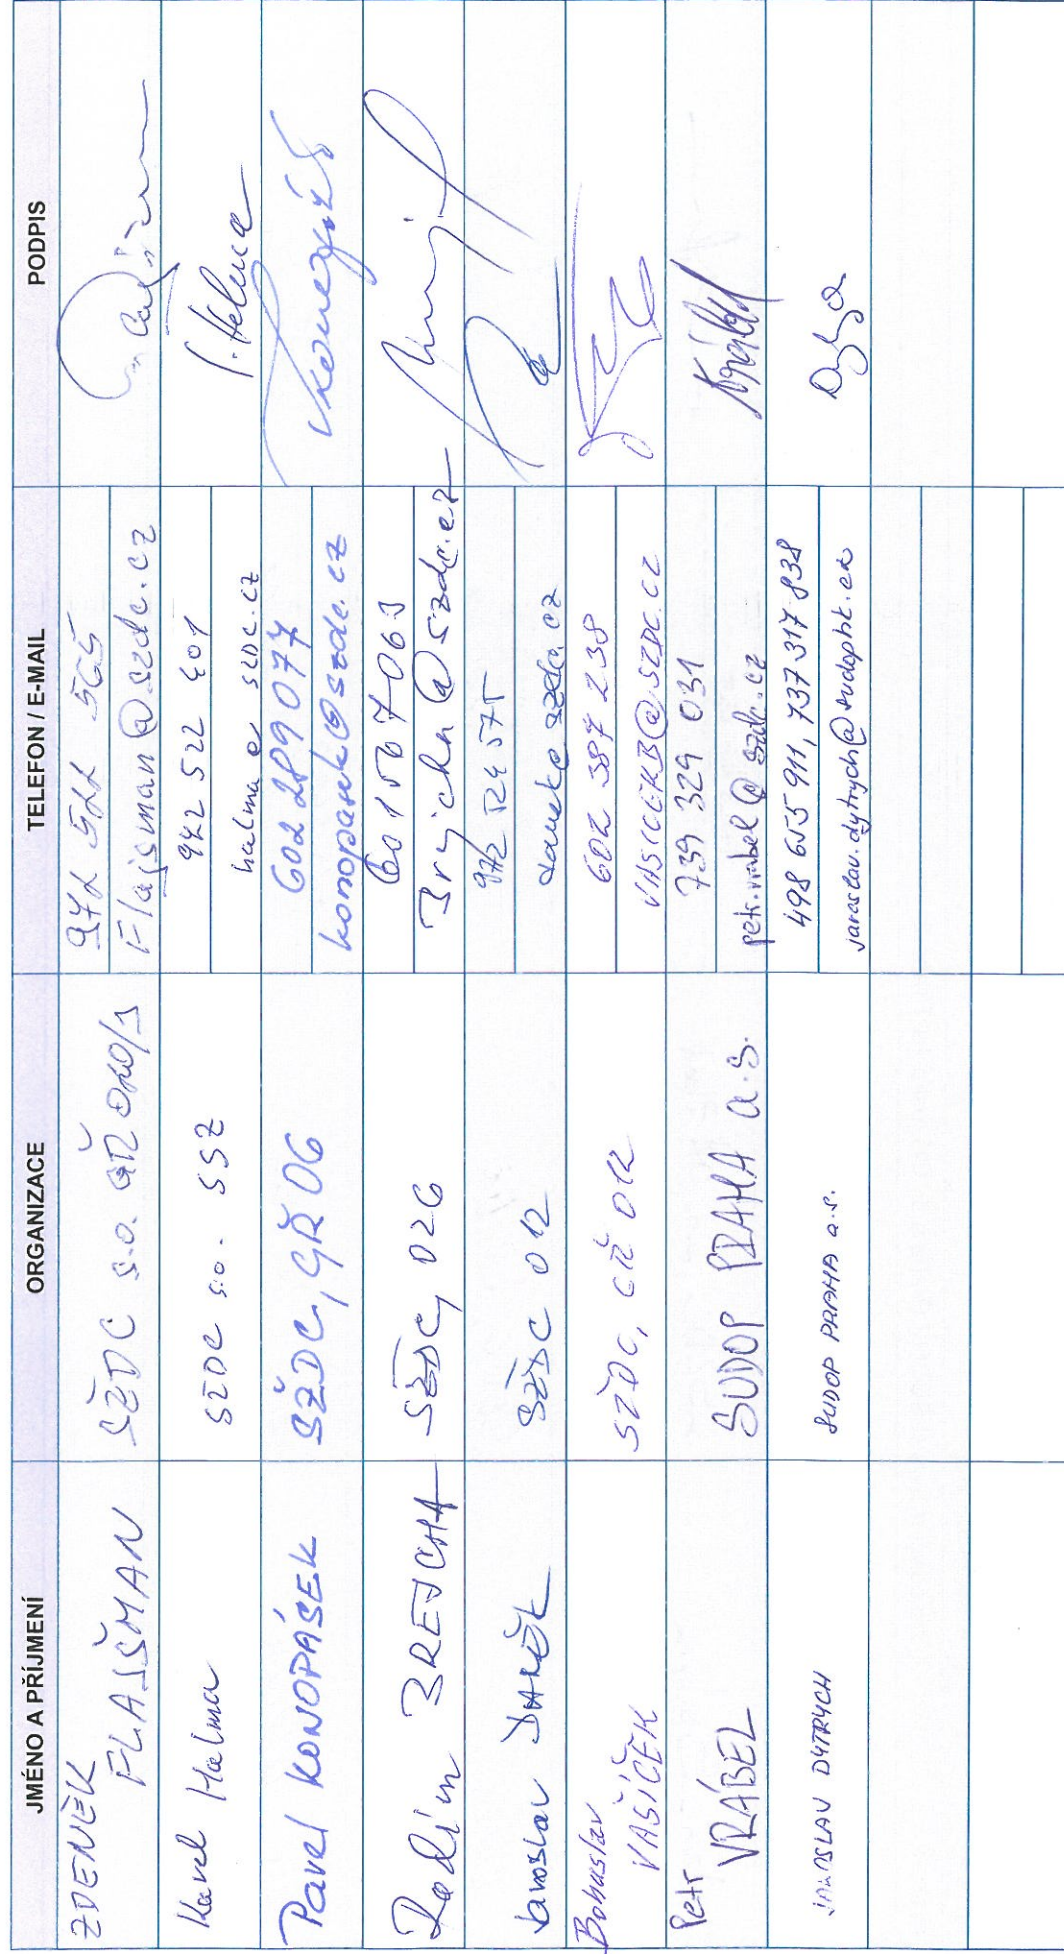 JMÉNO A PŘÍJMENÍ ORGANIZACE TELEFON / E-MAIL PODPIS
ZDENĚK FLAJŠMAN SŽDC s.o. GŘ
Flajsman@szdc.cz
Karel Halma SŽDC s.o. SSZ 972 522 401
halma@szdc.cz
Pavel KONOPÁSEK SŽDC, GŘ O6 602 289 077
konopasek@szdc.cz
Radim BREJCHA SŽDC, O26
Brejcha@szdc.cz
Jaroslav DANĚK SŽDC O12
danek@szdc.cz
Bohuslav VAŠÍČEK SŽDC, GŘ O12 602 387 238
VASICEKB@SZDC.CZ
Petr VRÁBEL SUDOP PRAHA a.s. 739 329 031
petr.vrabel@szdc.cz
JAROSLAV DYTRYCH SUDOP PRAHA a.s. 498 655 911, 737 317 838
jaroslav.dytrych@sudophk.cz